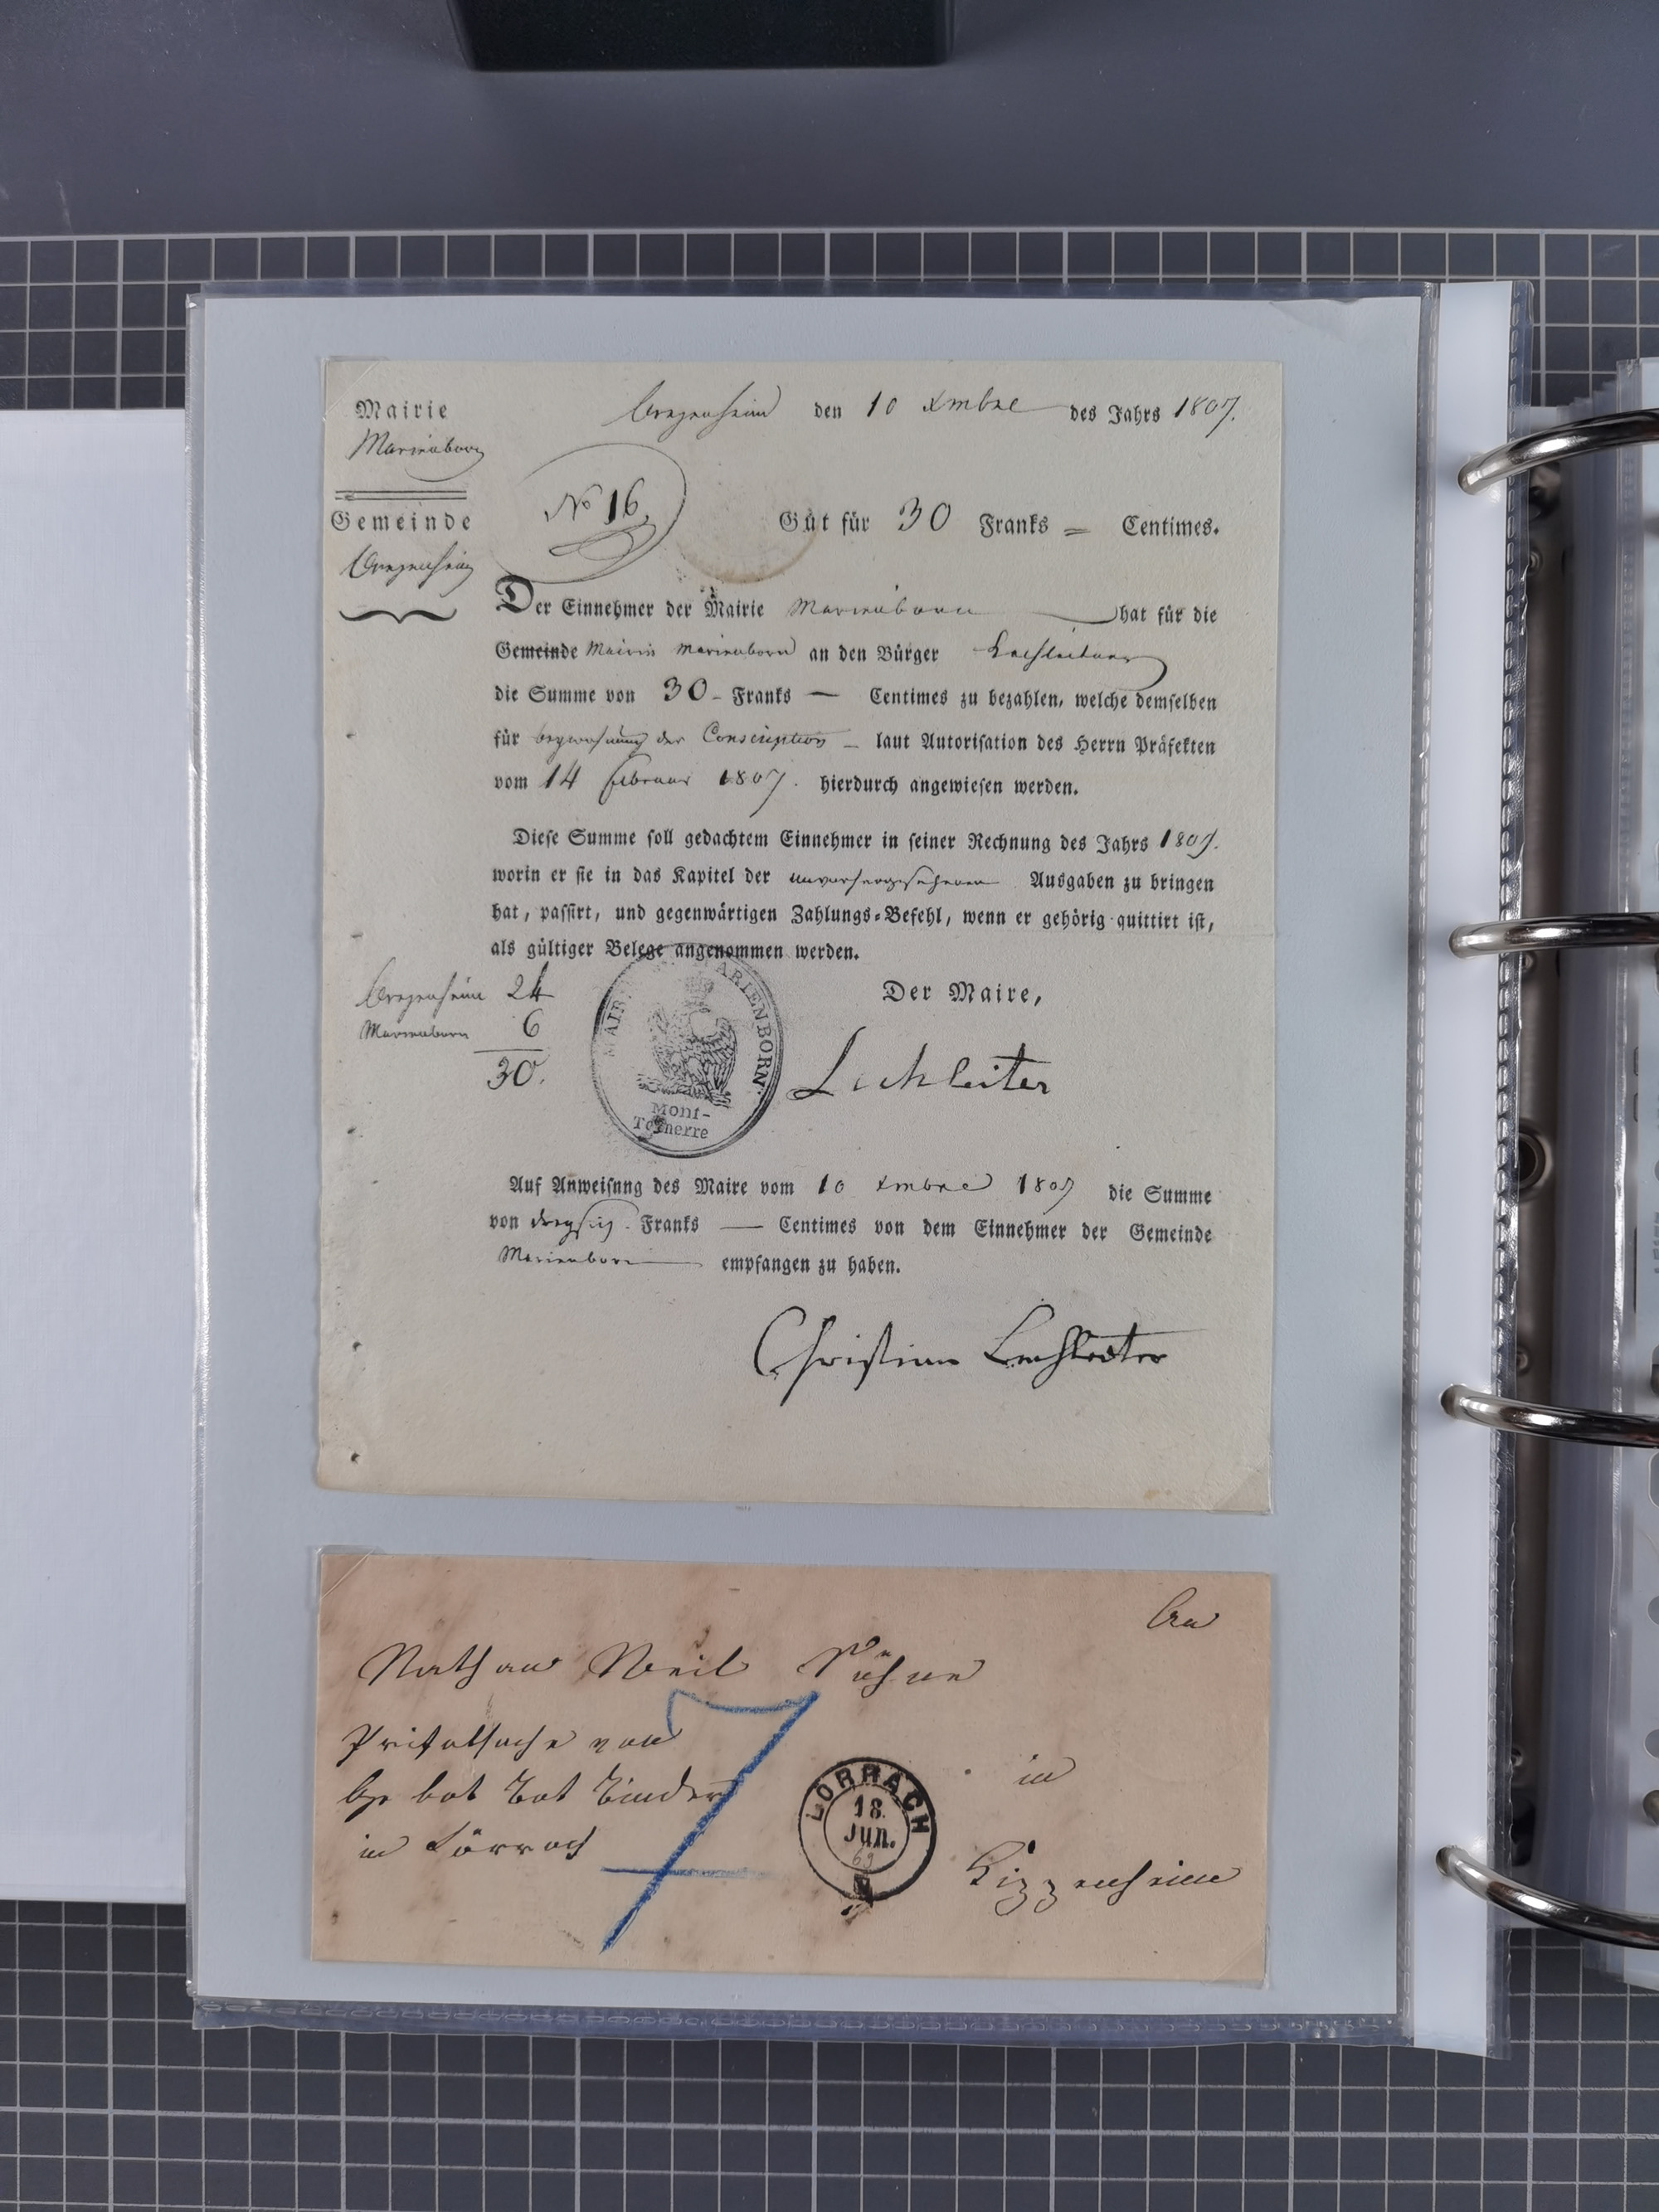 Mairie
Marienborn
Gemeinde
den 10 Xmbre des Jahrs 1807.
No 16.
Gut für 30 Franks = Centimes.
Der Einnehmer der Mairie Marienborn hat für die
Gemeinde Mairie Marienborn an den Bürger Lechleitner
die Summe von 30 - Franks — Centimes zu bezahlen, welche demselben
für der Conscription – laut Autorisation des Herrn Präfekten
vom 14 februar 1807. hierdurch angewiesen werden.
Diese Summe soll gedachtem Einnehmer in seiner Rechnung des Jahrs 1807.
worin er sie in das Kapitel der unvorhergesehenen Ausgaben zu bringen
hat, passirt, und gegenwärtigen Zahlungs-Befehl, wenn er gehörig quittirt ist,
als gültiger Belege angenommen werden.
24
Marienborn 6
30.
MAIRIE MARIENBORN
Mont-
Tonnerre
Der Maire,
Lechleiter
Auf Anweisung des Maire vom 10 Xmbre 1807 die Summe
von dreysig. Franks — Centimes von dem Einnehmer der Gemeinde
Marienborn empfangen zu haben.
Christian Lechleiter
An
Nathan Weil Söhne
Privatsache von
in Lörrach
LÖRRACH
18.
Jun.
in
Kippenheim
7